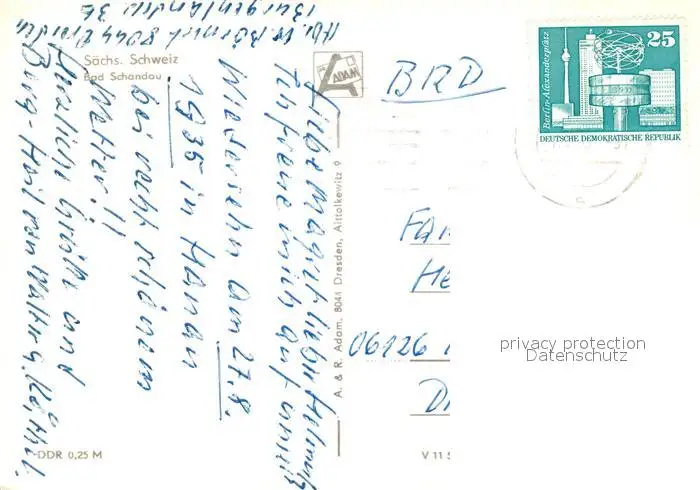 Abs. W. Börnert 8044 Dresden
Burgenlandstr. 36
Sächs. Schweiz
Bad Schandau
ADAM
BRD
Berlin-Alexanderplatz
25
DEUTSCHE DEMOKRATISCHE REPUBLIK
Liebe Magrit lieber Helmut
Ich freue mich auf unser
Wiedersehn am 27.8.
1935 in Hanau
bei recht schönem
Wetter!!
Herzliche Grüße und
Berg-Heil von Walter u. Käthel.
A. & R. Adam, 8041 Dresden, Altfolkewitz 9
FA
HE
06126
D
DDR 0,25 M
V 11
privacy protection
Datenschutz